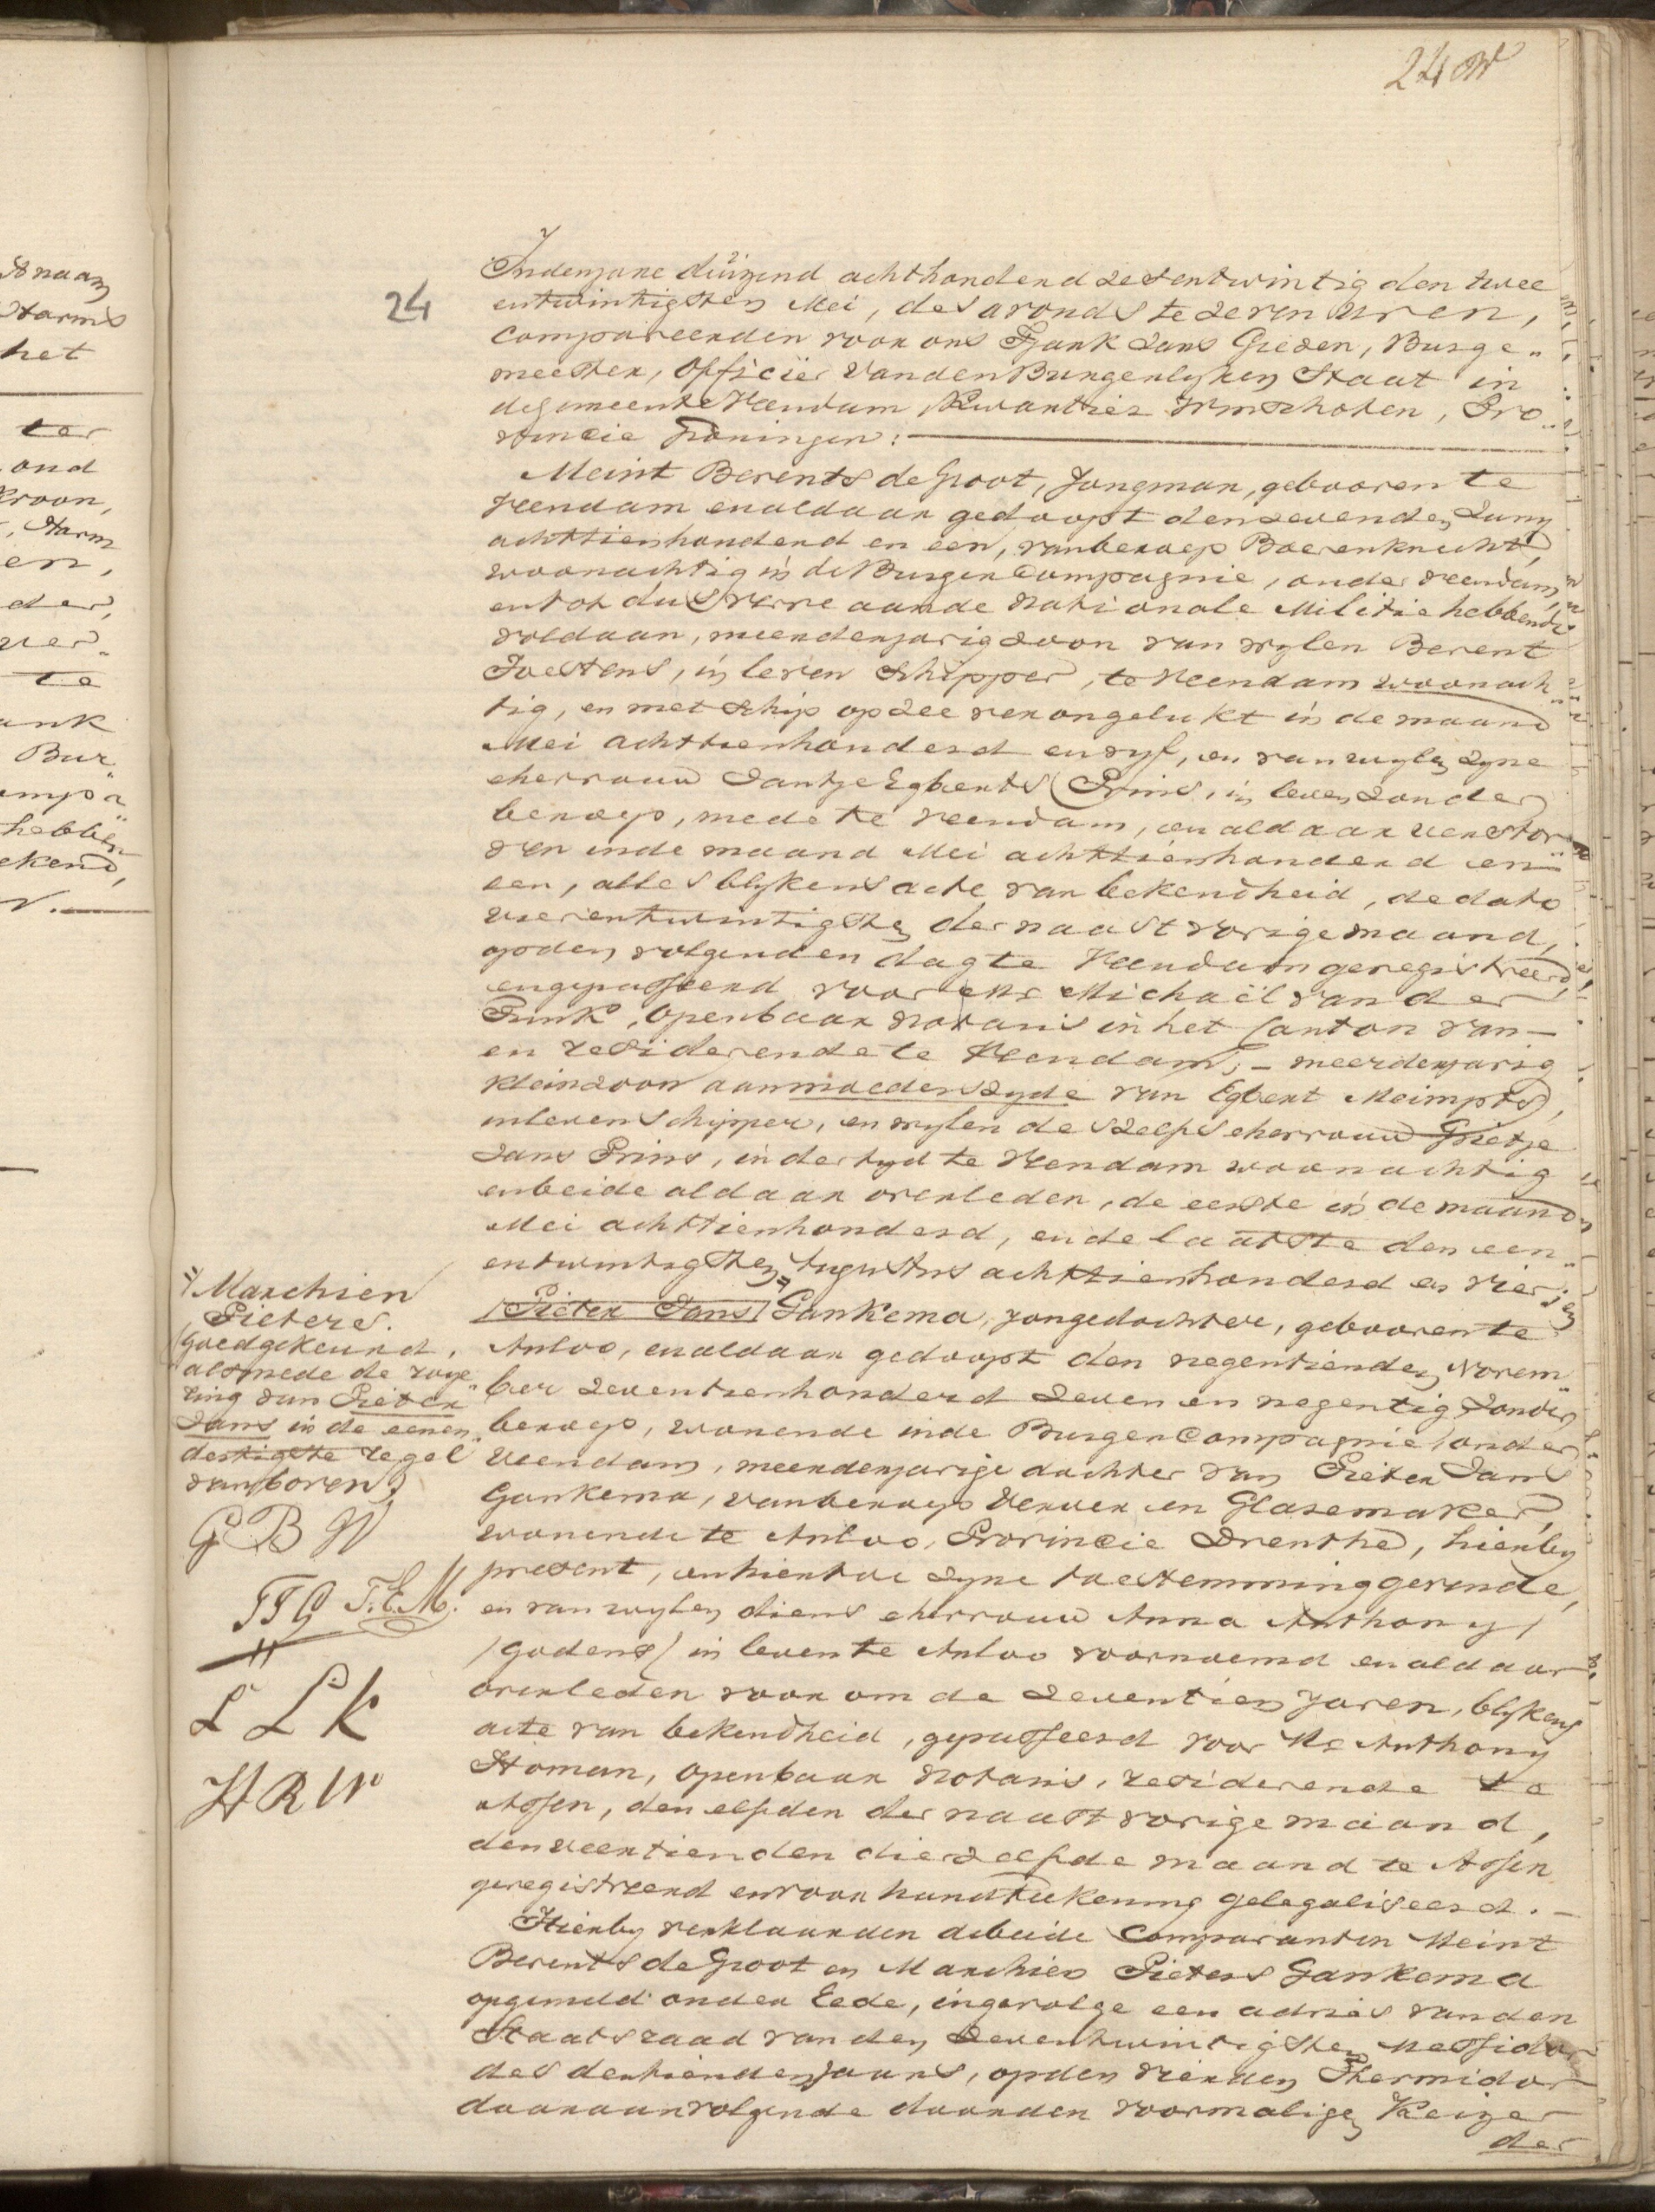 24 W
24
In den jare duizend achthonderd zesentwintig den twee
entwintigsten Mei, des avonds te zeven uren,
Compareerden voor ons Tjark Jans Giezen, Burge„
meester, Officier van den Burgerlyken Staat in
de gemeente Veendam, Kwartier Winschoten, Pro„
vincie Groningen:
Meint Berents de Groot, Jongman, gebooren te
Veendam en aldaar gedoopt den zevenden Juny
achttienhonderd en een, van beroep Boerenknecht,
woonachtig in de Burger Compagnie, onder Veendam,
en tot dus verre aan de Nationale Militie hebbende
voldaan, meerderjarig zoon van wylen Berent
Joestens, in leven Schipper, te Veendam woonach„
tig, en met schip op zee verongelukt in de maand
Mei achttienhonderd en vyf, en van wylen zyne
ehevrouw Jantje Egberts (Prins, in leven zonder
beroep, mede te Veendam, en aldaar verstor„
ven in de maand Mei achttienhonderd en
een, alles blykens acte van bekendheid, de dato
vierentwintigsten der naast vorige maand,
op den volgenden dag te Veendam geregistreerd,
en gepasseerd voor Mr Michaël van der
Tuuk, Openbaar Notaris in het Canton van—
en residerende te Veendam; — meerderjarig
kleinzoon aan moeders zyde van Egbert Meimpts,
in leven Schipper, en wylen deszelfs ehevrouw Grietje
Jans Prins, in der tyd te Veendam woonachtig
en beide aldaar overleden, de eerste in de maand
Mei achttienhonderd, en de laatste den een„
entwintigsten Augustus achttienhonderd en vier; en
Pieter Jans Gankema, jongedochter, gebooren te
Anloo, en aldaar gedoopt den negentienden Novem„
ber zeventienhonderd zeven en negentig, zonder
beroep, wonende in de Burger Compagnie onder
Veendam, meerderjarige dochter van Pieter Jans
Gankema, van beroep Verver en Glasemaker,
wonende te Anloo, Provincie Drenthe, hierby
present, en hiertoe zyne toestemming gevende,
en van wylen diens ehevrouw Anna Anthony
(Godens) in leven te Anloo voornoemd en aldaar
overleden voor om de zeventien jaren, blykens
acte van bekendheid, gepasseerd voor Mr Anthony
Homan, Openbaar Notaris, residerende te
Assen, den elfden der naast vorige maand,
den veertienden diezelfde maand te Assen
geregistreerd en voor handteekening gelegaliseerd. —
Hierby verklaarden de beide Comparanten Meint
Berents de Groot en Marchien Pieters Gankema
opgemeld onder Eede, ingevolge een advies van den
Staatsraad van den zevenentwintigsten Messidor
des dertienden jaars, op den vierden Thermidor
daaraanvolgende door den voormaligen Keizer
der
Marchien
Pieters.
Goedgekeurd,
alsmede de roye„
ring van Pieter
Jans in de eenen„
dertigste regel
van boven.
G B W
TJG J.E.M.
L L K
H R W